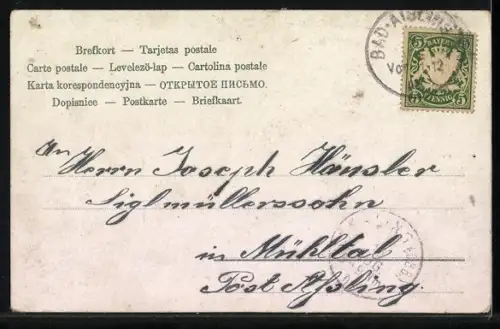 Brefkort — Tarjetas postale
Carte postale — Levelező-lap — Cartolina postale
Karta korespondencyjna — ОТКРЫТОЕ ПИСЬМО.
Dopisnice — Postkarte — Briefkaart.
BAD-AIBLING
BAYERN
5 5
PFENNIG
An
Herrn Joseph Häusler
Siglmüllerssohn
in Mühltal
Post Aßling